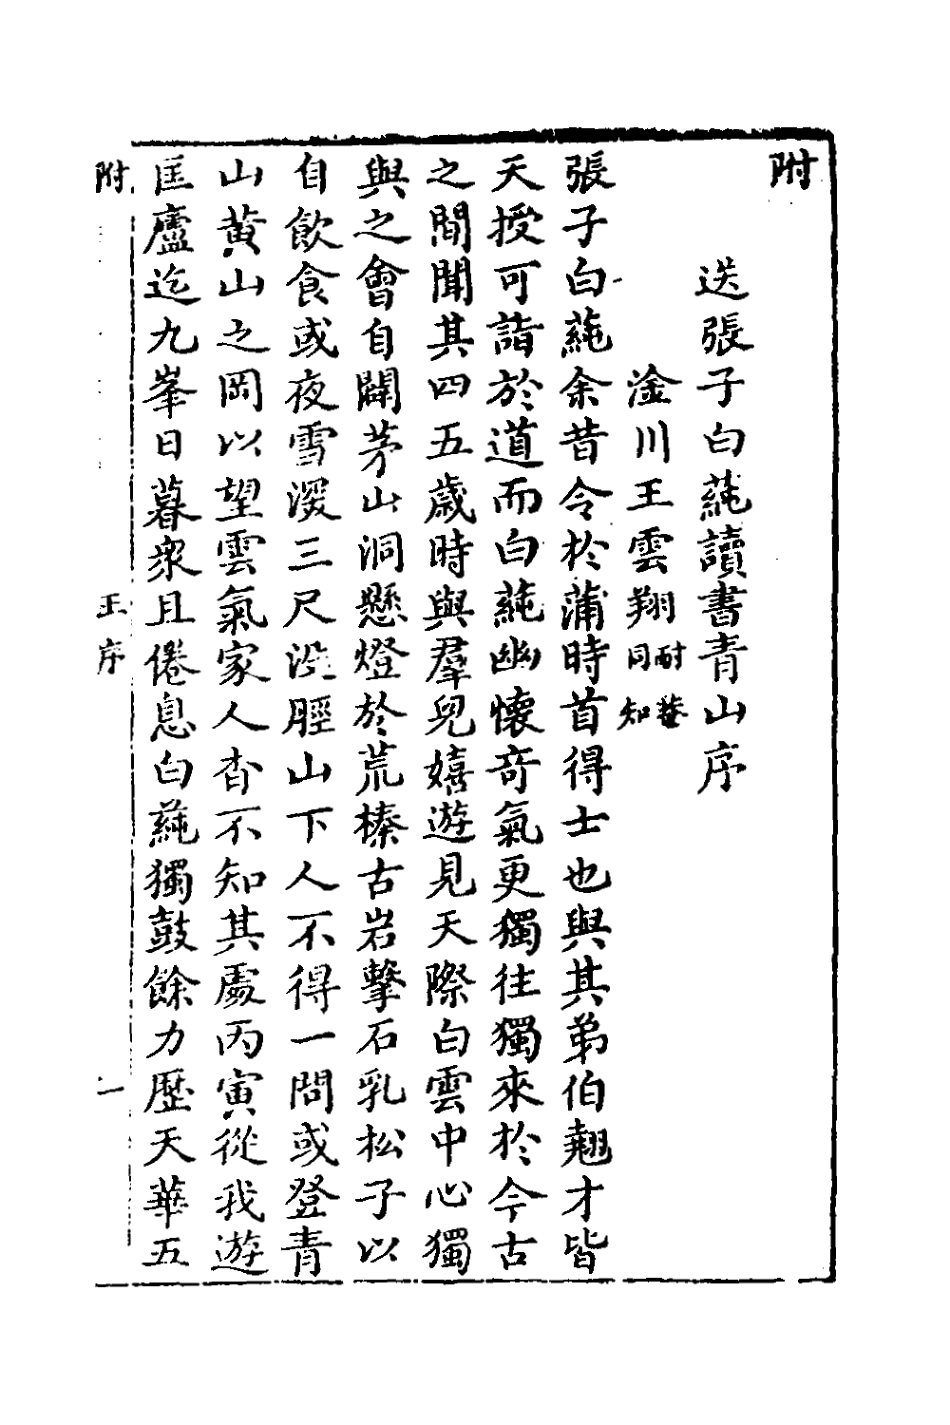 附
送張子白蒓讀書青山序
淦川王雲翔耐菴同知
張子白蒓余昔令於蒲時首得士也與其弟伯翹才皆
天授可詣於道而白蒓幽懷奇氣更獨往獨來於今古
之間聞其四五歲時與羣兒嬉遊見天際白雲中心獨
與之會自闢茅山洞懸燈於荒榛古岩擊石乳松子以
自飲食或夜雪深三尺沒脛山下人不得一問或登青
山黃山之岡以望雲氣家人杳不知其處丙寅從我遊
匡廬迄九峯日暮衆且倦息白蒓獨鼓餘力歷天華五
附
王序
一